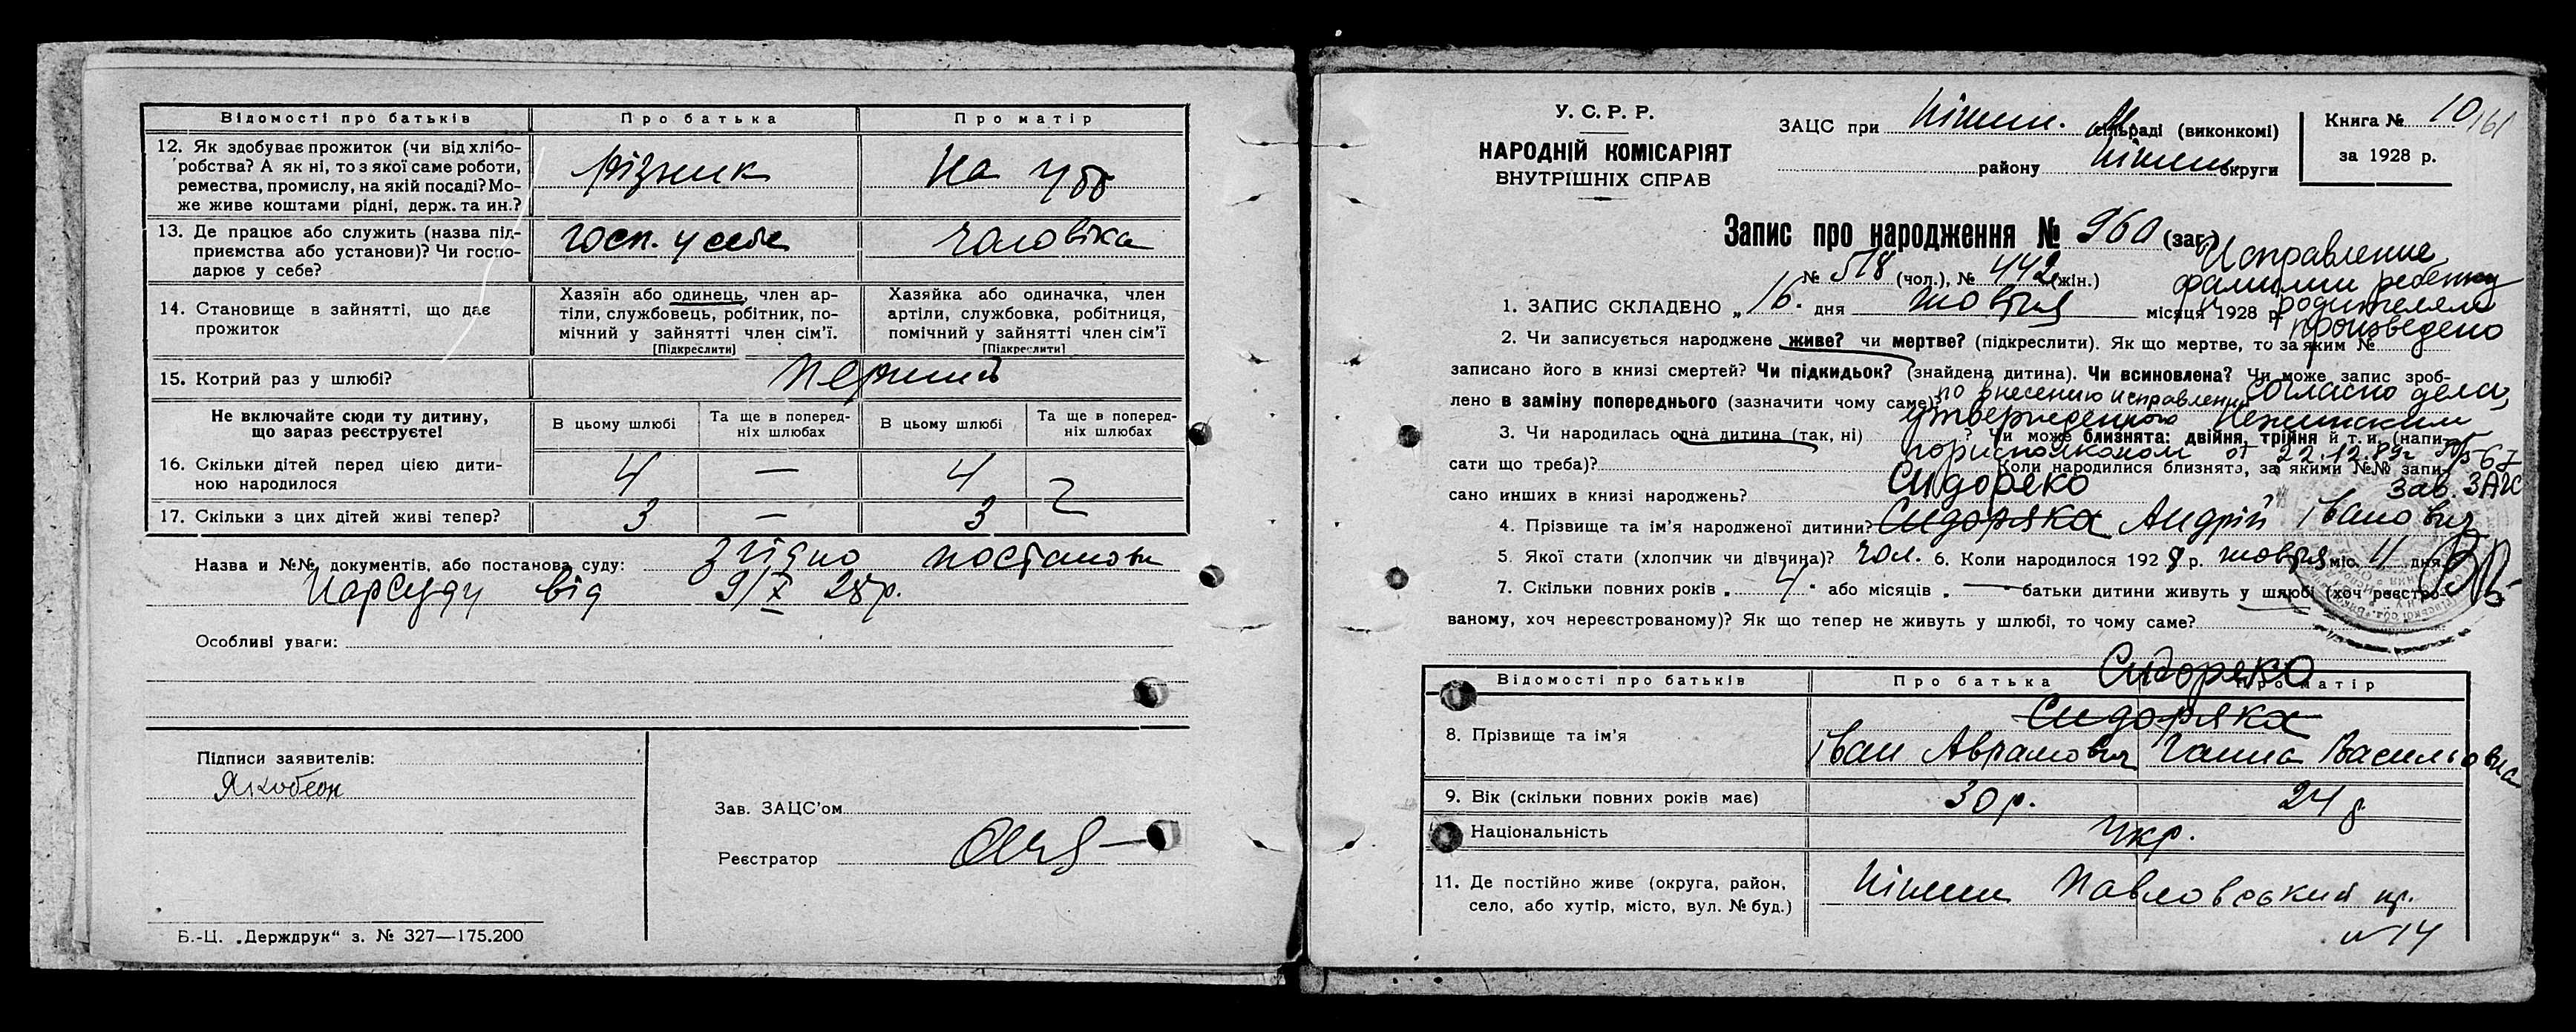 Відомості про батьків Про батька Про матір
12. Як здобуває прожиток (чи від хлібо-
робства? А як ні, то з якої саме роботи,
ремества, промислу, на якій посаді? Мо-
же живе коштами рідні, держ. та ин.?
різник На утр
13. Де працює або служить (назва під-
приємства або установи)? Чи госпо-
дарює у себе?
госп. у себе чоловіка
14. Становище в зайнятті, що дає
прожиток
Хазяїн або одинець, член ар-
тіли, службовець, робітник, по-
мічний у зайнятті член сім'ї.
[Підкреслити]
Хазяйка або одиначка, член
артіли, службовка, робітниця,
помічний у зайнятті член сім'ї
[Підкреслити]
15. Котрий раз у шлюбі? перший
Не включайте сюди ту дитину,
що зараз реєструєте!
В цьому шлюбі
Та ще в поперед-
ніх шлюбах
В цьому шлюбі
Та ще в поперед-
ніх шлюбах
16. Скільки дітей перед цією дити-
ною народилося
4 — 4
17. Скільки з цих дітей живі тепер? 3 — 3
Назва и №№ документів, або постанова суду: згідно постанови
Нарсуду від 9/X 28р.
Особливі уваги:
Підписи заявителів:
Зав. ЗАЦС'ом
Реєстратор
Б.-Ц. „Держдрук“ з. № 327—175.200
У. С. Р. Р.
НАРОДНІЙ КОМІСАРІЯТ
ВНУТРІШНІХ СПРАВ
ЗАЦС при Ніжин. М сільраді (виконкомі)
району Ніжин округи
Книга № 10
161
за 1928 р.
Запис про народження № 960 (заг.)
№ 518 (чол.), № 442 (жін.)
Исправление
фамилии ребенку
и родителям
произведено
1. ЗАПИС СКЛАДЕНО „16“ дня жовтня місяця 1928 р.
2. Чи записується народжене живе? чи мертве? (підкреслити). Як що мертве, то за яким №
записано його в книзі смертей? Чи підкидьок? (знайдена дитина). Чи всиновлена? Чи може запис зроб-
лено в заміну попереднього (зазначити чому саме)?
по внесению исправлений согласно дела,
утвержденного Нежинским
3. Чи народилась одна дитина (так, ні) ? Чи може близнята: двійня, трійня й т. и. (напи-
горисполкомом от 22.12.89г № 567
сати що треба)? Коли народилися близнята, за якими №№ запи-
Зав. ЗАГС
сано инших в книзі народжень?
Сидоряко
4. Прізвище та ім'я народженої дитини? Сидоряка Андрій Іванович
5. Якої стати (хлопчик чи дівчина)? чол. 6. Коли народилося 1928 р. жовтня міс. 11 дня.
7. Скільки повних років „4“ або місяців „—“ батьки дитини живуть у шлюбі (хоч реєстро-
ваному, хоч нереєстрованому)? Як що тепер не живуть у шлюбі, то чому саме?
Сидоряко
Відомості про батьків Про батька Про матір
Сидоряка
8. Прізвище та ім'я Іван Аврамович Ганна Васильовна
9. Вік (скільки повних років має) 30 р. 24 р
Національність Укр.
11. Де постійно живе (округа, район,
село, або хутір, місто, вул. № буд.)
Ніжин Павловський пр.
№ 14